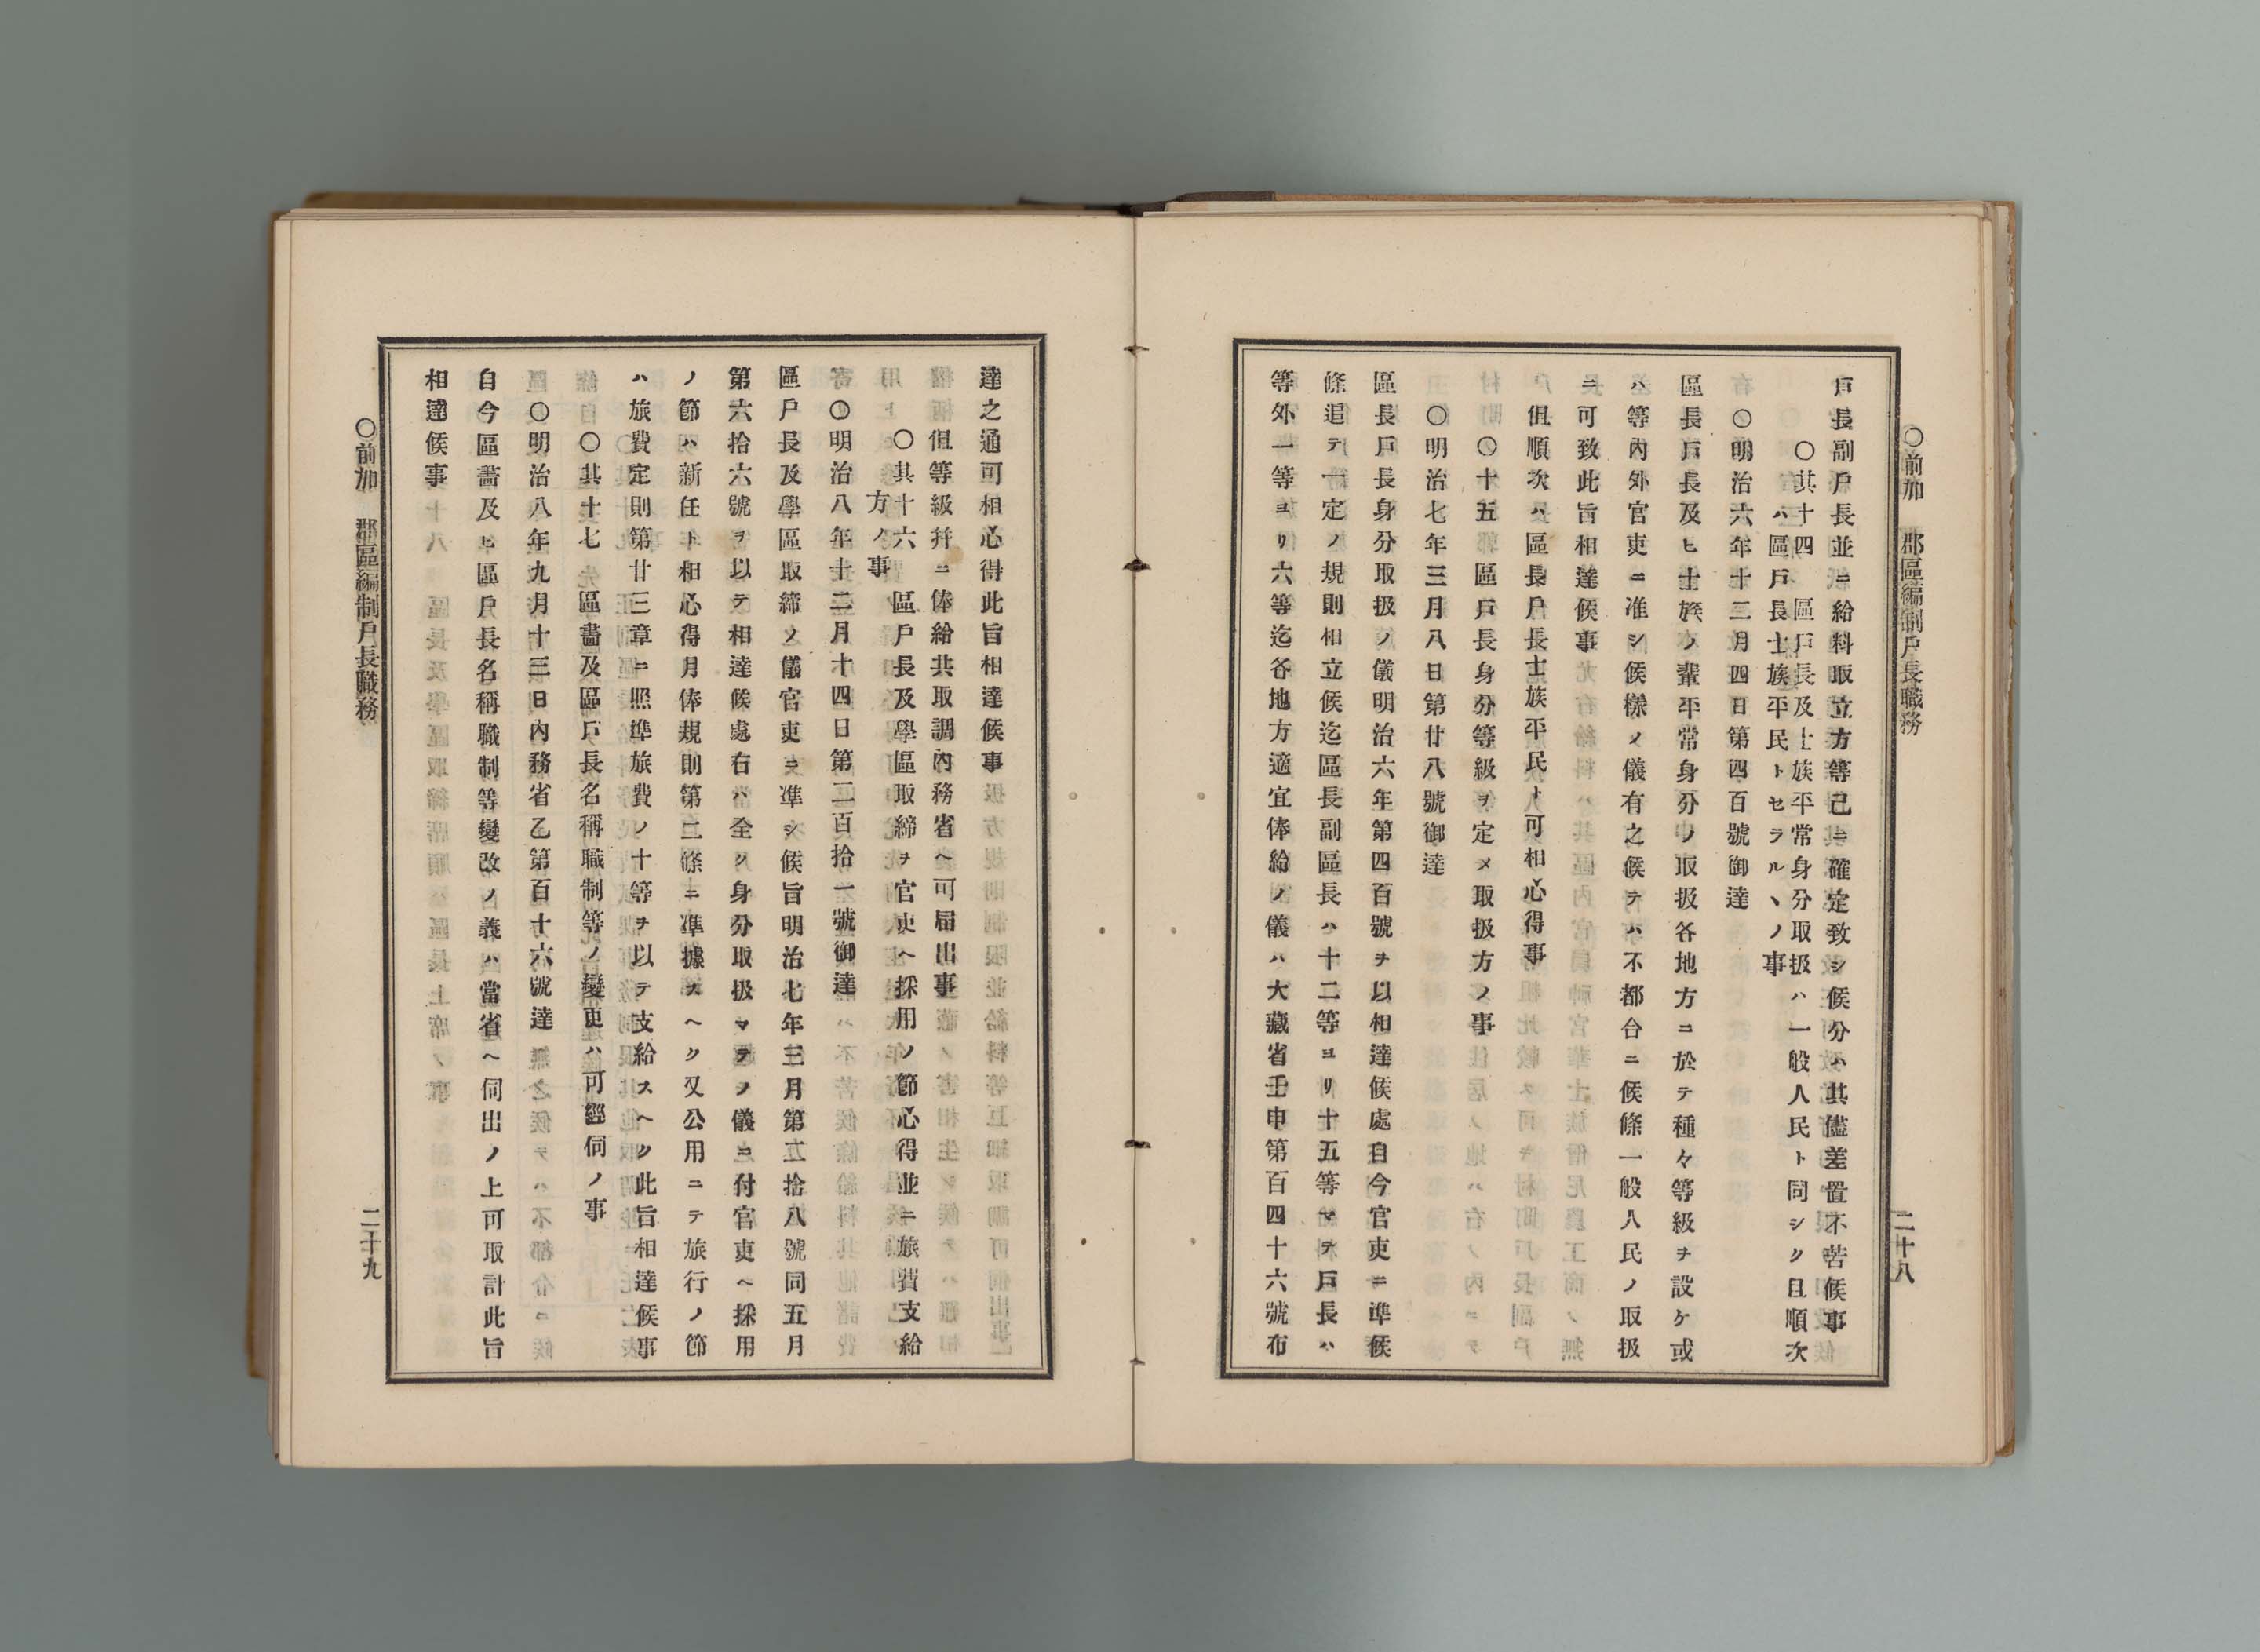 ○前加 郡區編制戶長職務
二十八
戶長副戶長並ニ給料取立方等已ニ確定致シ候分ハ其儘差置不苦候事
○其十四 區戶長及士族平常身分取扱ハ一般人民ト同シク且順次
ハ區戶長士族平民トセラルヽノ事
○明治六年十二月四日第四百號御達
區長戶長及ヒ士族ノ輩平常身分ノ取扱各地方ニ於テ種々等級ヲ設ケ或
ハ等內外官吏ニ准シ候樣ノ儀有之候テハ不都合ニ候條一般人民ノ取扱
ニ可致此旨相達候事
但順次ハ區長戶長士族平民ト可相心得事
○十五 區戶長身分等級ヲ定メ取扱方ノ事
○明治七年三月八日第廿八號御達
區長戶長身分取扱ノ儀明治六年第四百號ヲ以相達候處自今官吏ニ準候
條追テ一定ノ規則相立候迄區長副區長ハ十二等ヨリ十五等マテ戶長ハ
等外一等ヨリ六等迄各地方適宜俸給ノ儀ハ大藏省壬申第百四十六號布
達之通可相心得此旨相達候事
但等級幷ニ俸給共取調內務省ヘ可屆出事
○其十六 區戶長及學區取締ヲ官吏ヘ採用ノ節心得並ニ旅費支給
方ノ事
○明治八年十二月十四日第二百拾一號御達
區戶長及學區取締ノ儀官吏ニ準シ候旨明治七年三月第五拾八號同五月
第六拾六號ヲ以テ相達候處右ハ全ク身分取扱マテノ儀ニ付官吏ヘ採用
ノ節ハ新任ト相心得月俸規則第二條ニ準據スヘク又公用ニテ旅行ノ節
ハ旅費定則第廿三章ニ照準旅費ノ十等ヲ以テ支給スヘク此旨相達候事
○其十七 區畵及區戶長名稱職制等ノ變更ハ可經伺ノ事
○明治八年九月十三日內務省乙第百十六號達
自今區畵及ヒ區戶長名稱職制等變改ノ義ハ當省ヘ伺出ノ上可取計此旨
相達候事
○前加 郡區編制戶長職務
二十九